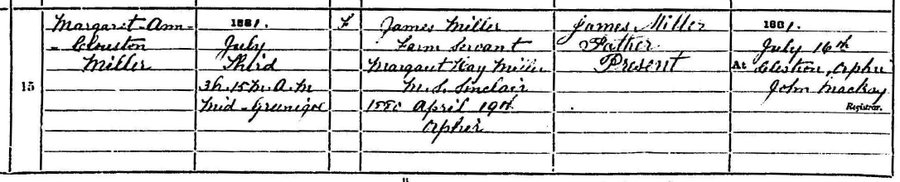 15
Margaret Ann
Clouston
Miller
1881.
July
Third
3h. 15m. A.M
Mid-Greenigoe
F
James Miller
Farm Servant
Margaret Kay Miller
M.S. Sinclair
1880 April 19th
Orphir
James Miller
Father
Present
1881.
July 16th
At Clestron, Orphir
John Mackay
Registrar.